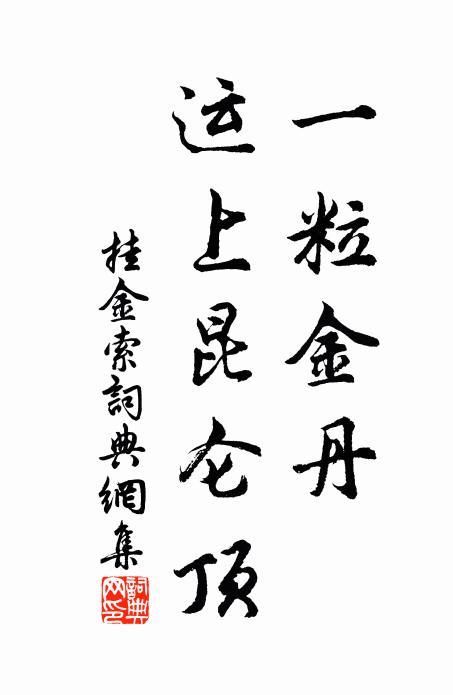 一粒金丹
运上昆仑顶
挂金索詞典網集
詞典網印